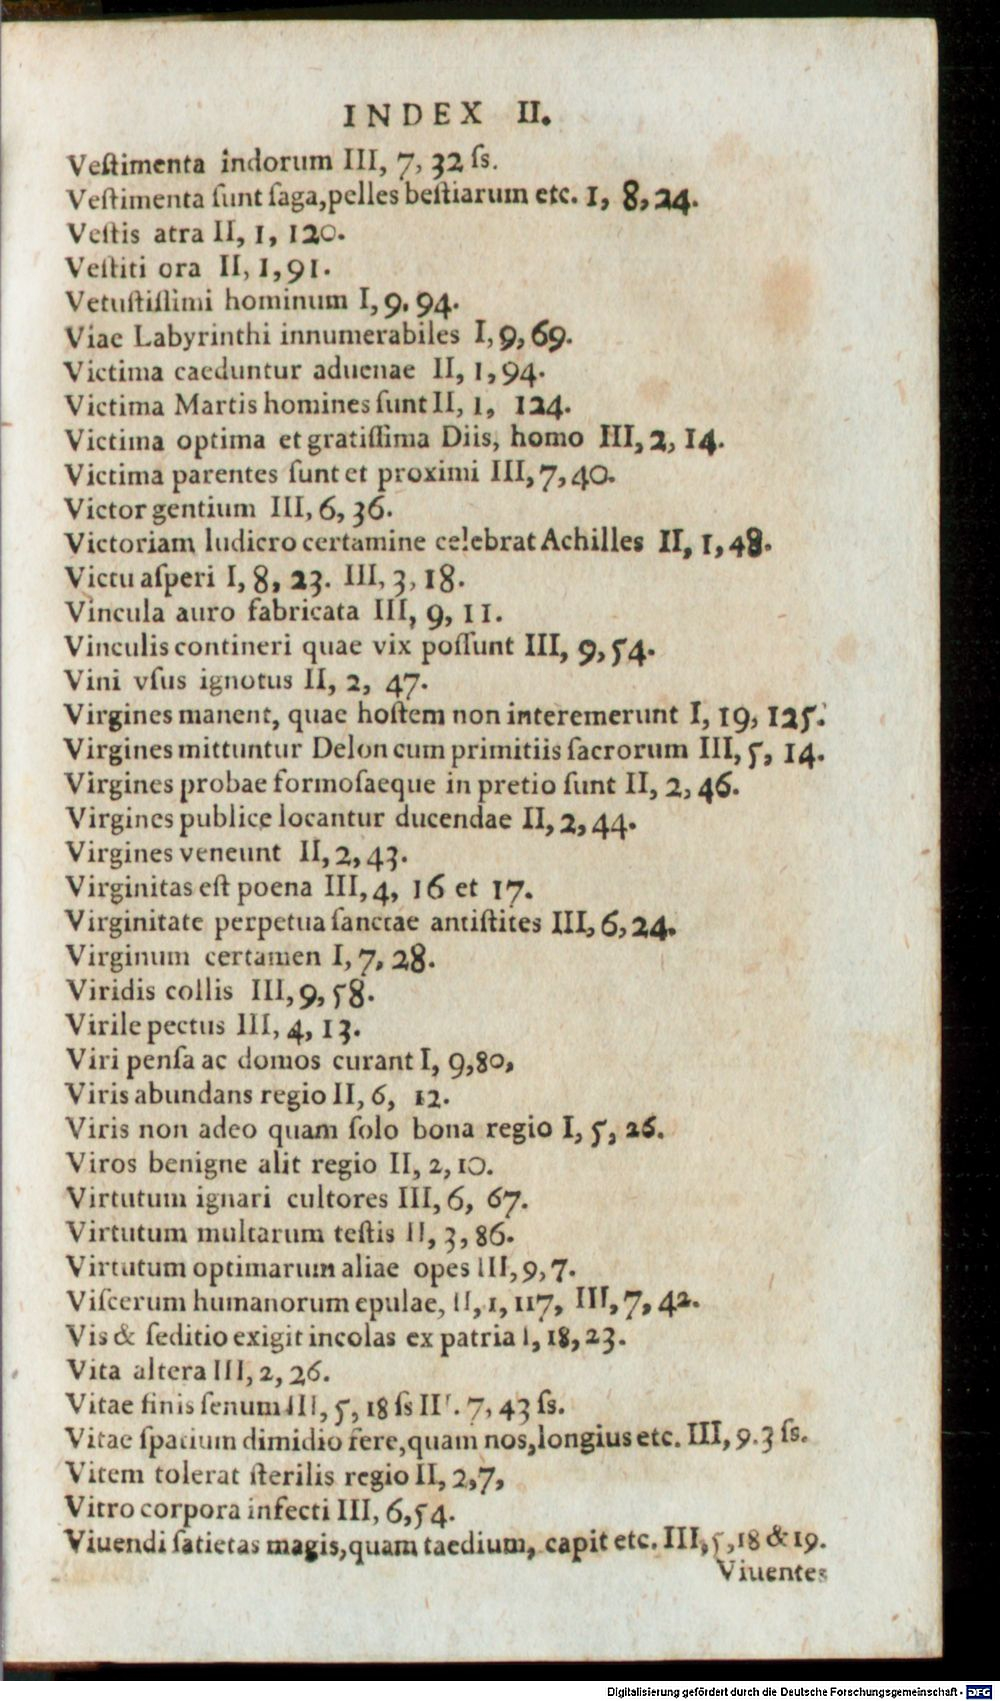 INDEX II.
Veſtimenta indorum III, 7, 32 ſs.
Veſtimenta ſunt ſaga, pelles beſtiarum etc. I, 8, 24.
Veſtis atra II, 1, 120.
Veſtiti ora II, 1, 91.
Vetuſtiſſimi hominum I, 9. 94.
Viae Labyrinthi innumerabiles I, 9, 69.
Victima caeduntur aduenae II, 1, 94.
Victima Martis homines ſunt II, 1, 124.
Victima optima et gratiſſima Diis, homo III, 2, 14.
Victima parentes ſunt et proximi III, 7, 40.
Victor gentium III, 6, 36.
Victoriam ludicro certamine celebrat Achilles II, 1, 48.
Victu aſperi I, 8, 23. III, 3, 18.
Vincula auro fabricata III, 9, 11.
Vinculis contineri quae vix poſſunt III, 9, 54.
Vini vſus ignotus II, 2, 47.
Virgines manent, quae hoſtem non interemerunt I, 19, 125.
Virgines mittuntur Delon cum primitiis ſacrorum III, 5, 14.
Virgines probae formoſaeque in pretio ſunt II, 2, 46.
Virgines publice locantur ducendae II, 2, 44.
Virgines veneunt II, 2, 43.
Virginitas eſt poena III, 4, 16 et 17.
Virginitate perpetua ſanctae antiſtites III, 6, 24.
Virginum certamen I, 7, 28.
Viridis collis III, 9, 58.
Virile pectus III, 4, 13.
Viri penſa ac domos curant I, 9, 80,
Viris abundans regio II, 6, 12.
Viris non adeo quam ſolo bona regio I, 5, 26.
Viros benigne alit regio II, 2, 10.
Virtutum ignari cultores III, 6, 67.
Virtutum multarum teſtis II, 3, 86.
Virtutum optimarum aliae opes III, 9, 7.
Viſcerum humanorum epulae, II, 1, 117, III, 7, 42.
Vis & ſeditio exigit incolas ex patria I, 18, 23.
Vita altera III, 2, 26.
Vitae finis ſenum III, 5, 18 ſs III. 7, 43 ſs.
Vitae ſpatium dimidio fere, quam nos, longius etc. III, 9. 3 ſs.
Vitem tolerat ſterilis regio II, 2, 7,
Vitro corpora infecti III, 6, 54.
Viuendi ſatietas magis, quam taedium, capit etc. III, 5, 18 & 19.
Viuentes
Digitalisierung gefördert durch die Deutsche Forschungsgemeinschaft - DFG